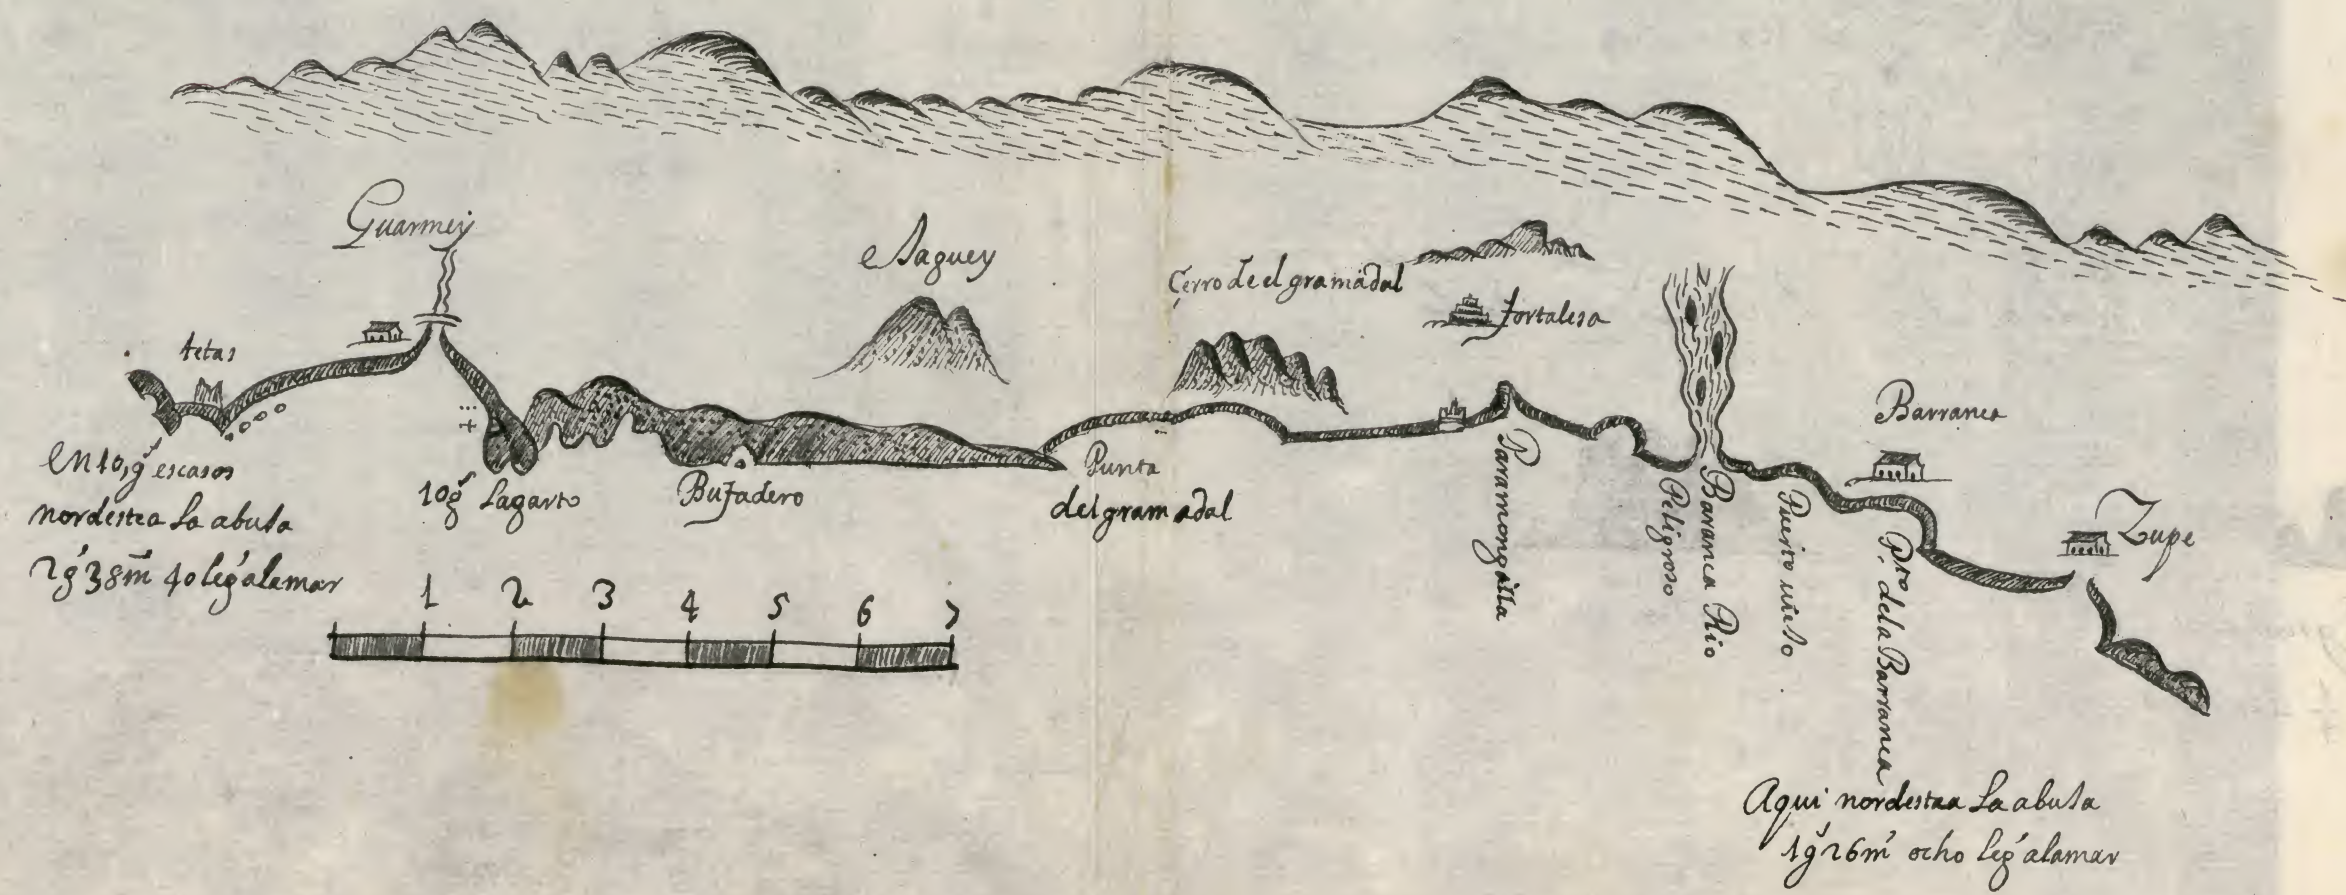 Guarmey
Maguey
Çerro de el gramadal
fortalesa
tetas
Barranca
en 10, g.s escasos
nordestea la abuja
2 g.s 38 m̄ 40 leg.s alamar
10 g.s Lagarto
Bufadero
Punta
del gramadal
Paramonguilla
Baranca Rio
Peligroso
Puerto uiejo
P.to de la Barranca
Zupe
1 2 3 4 5 6 7
Aqui nordestea la abuja
1 g.s 26 m.s ocho leg.s alamar